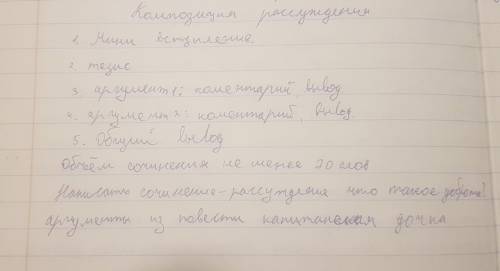 Композиция рассуждения
1. Мини вступление.
2. тезис
3. аргумент 1: коментарий, вывод
4. аргумент 2: коментарий, вывод.
5. Общий вывод
Объём сочинения не менее 70 слов
Написать сочинение-рассуждение что такое доброта?
аргументы из повести капитанская дочка